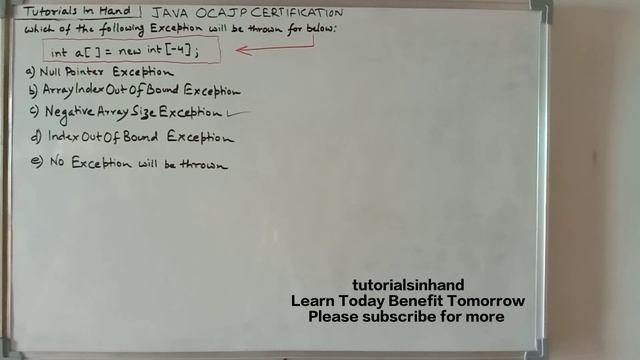 Tutorials In Hand | JAVA OCAJP CERTIFICATION
Which of the following Exception will be thrown for below:
int a[] = new int[-4];
a) Null Pointer Exception
b) ArrayIndexOutOfBound Exception
c) Negative Array Size Exception ✓
d) IndexOutOfBound Exception
e) No Exception will be thrown
tutorialsinhand
Learn Today Benefit Tomorrow
Please subscribe for more